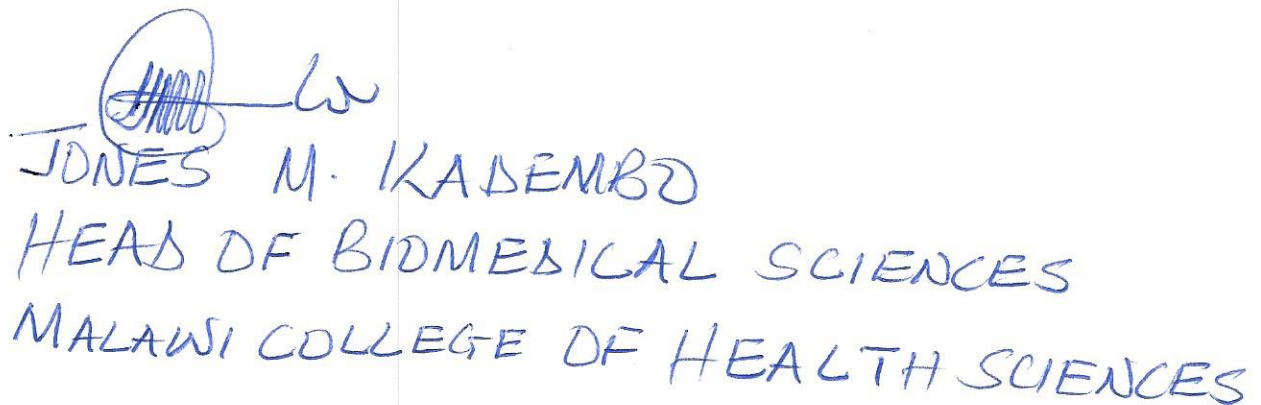 JONES M. KADEMBO
HEAD OF BIOMEDICAL SCIENCES
MALAWI COLLEGE OF HEALTH SCIENCES